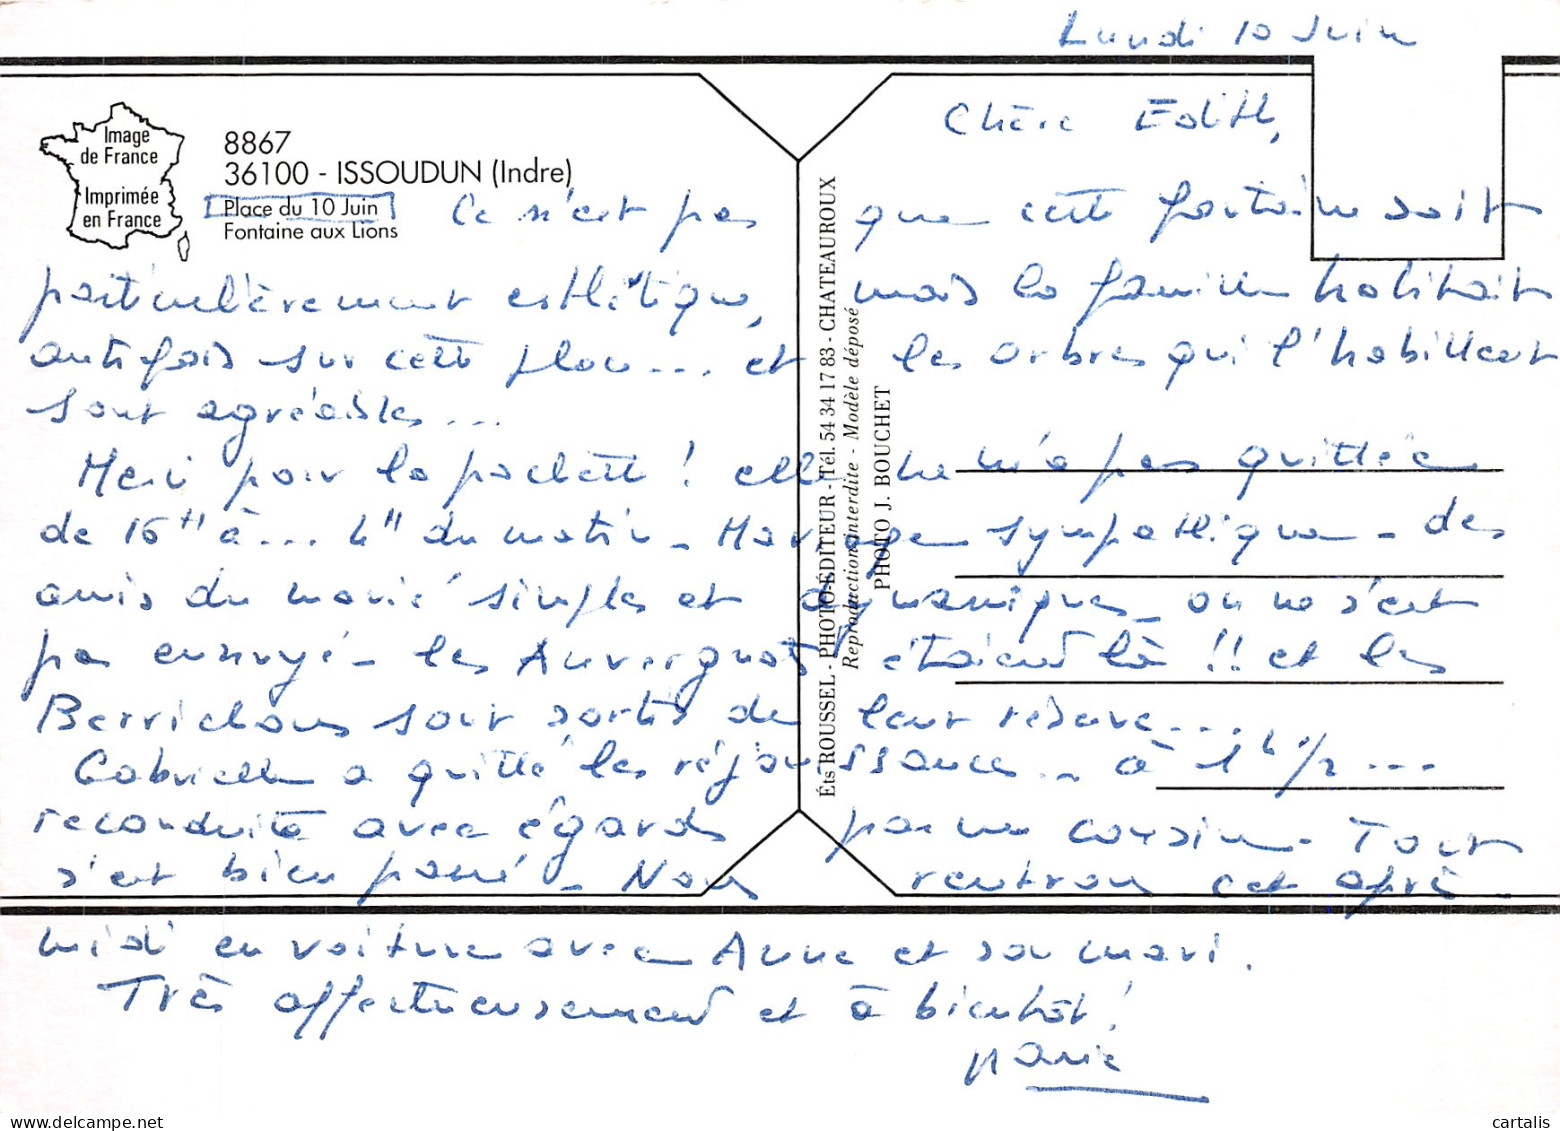 Lundi 10 Juin
Image
de France
Imprimée
en France
8867
36100 - ISSOUDUN (Indre)
Place du 10 Juin
Fontaine aux Lions
Éts ROUSSEL - PHOTO-ÉDITEUR - Tél. 54 34 17 83 - CHATEAUROUX
Reproduction interdite - Modèle déposé
PHOTO J. BOUCHET
Chère Edith,
Ce n'est pas que cette fontaine soit
particulièrement esthétique, mais la famille habitait
autrefois sur cette place... et les arbres qui l'habillent
sont agréables...
Merci pour la pochette ! elle ne m'a pas quittée
de 16H à... 4H du matin - Mariage sympathique - des
amis du marié simples et dynamiques - on ne s'est
pas ennuyé - les Auvergnats étaient là !! et les
Berrichons sont sortis de leur réserve...
Gabrielle a quitté les réjouissances... à 1h 1/2...
reconduite avec égards par un cousin - Tout
s'est bien passé - Nous rentrons cet après
midi en voiture avec Anne et son mari.
Très affectueusement et à bientôt !
cartalis